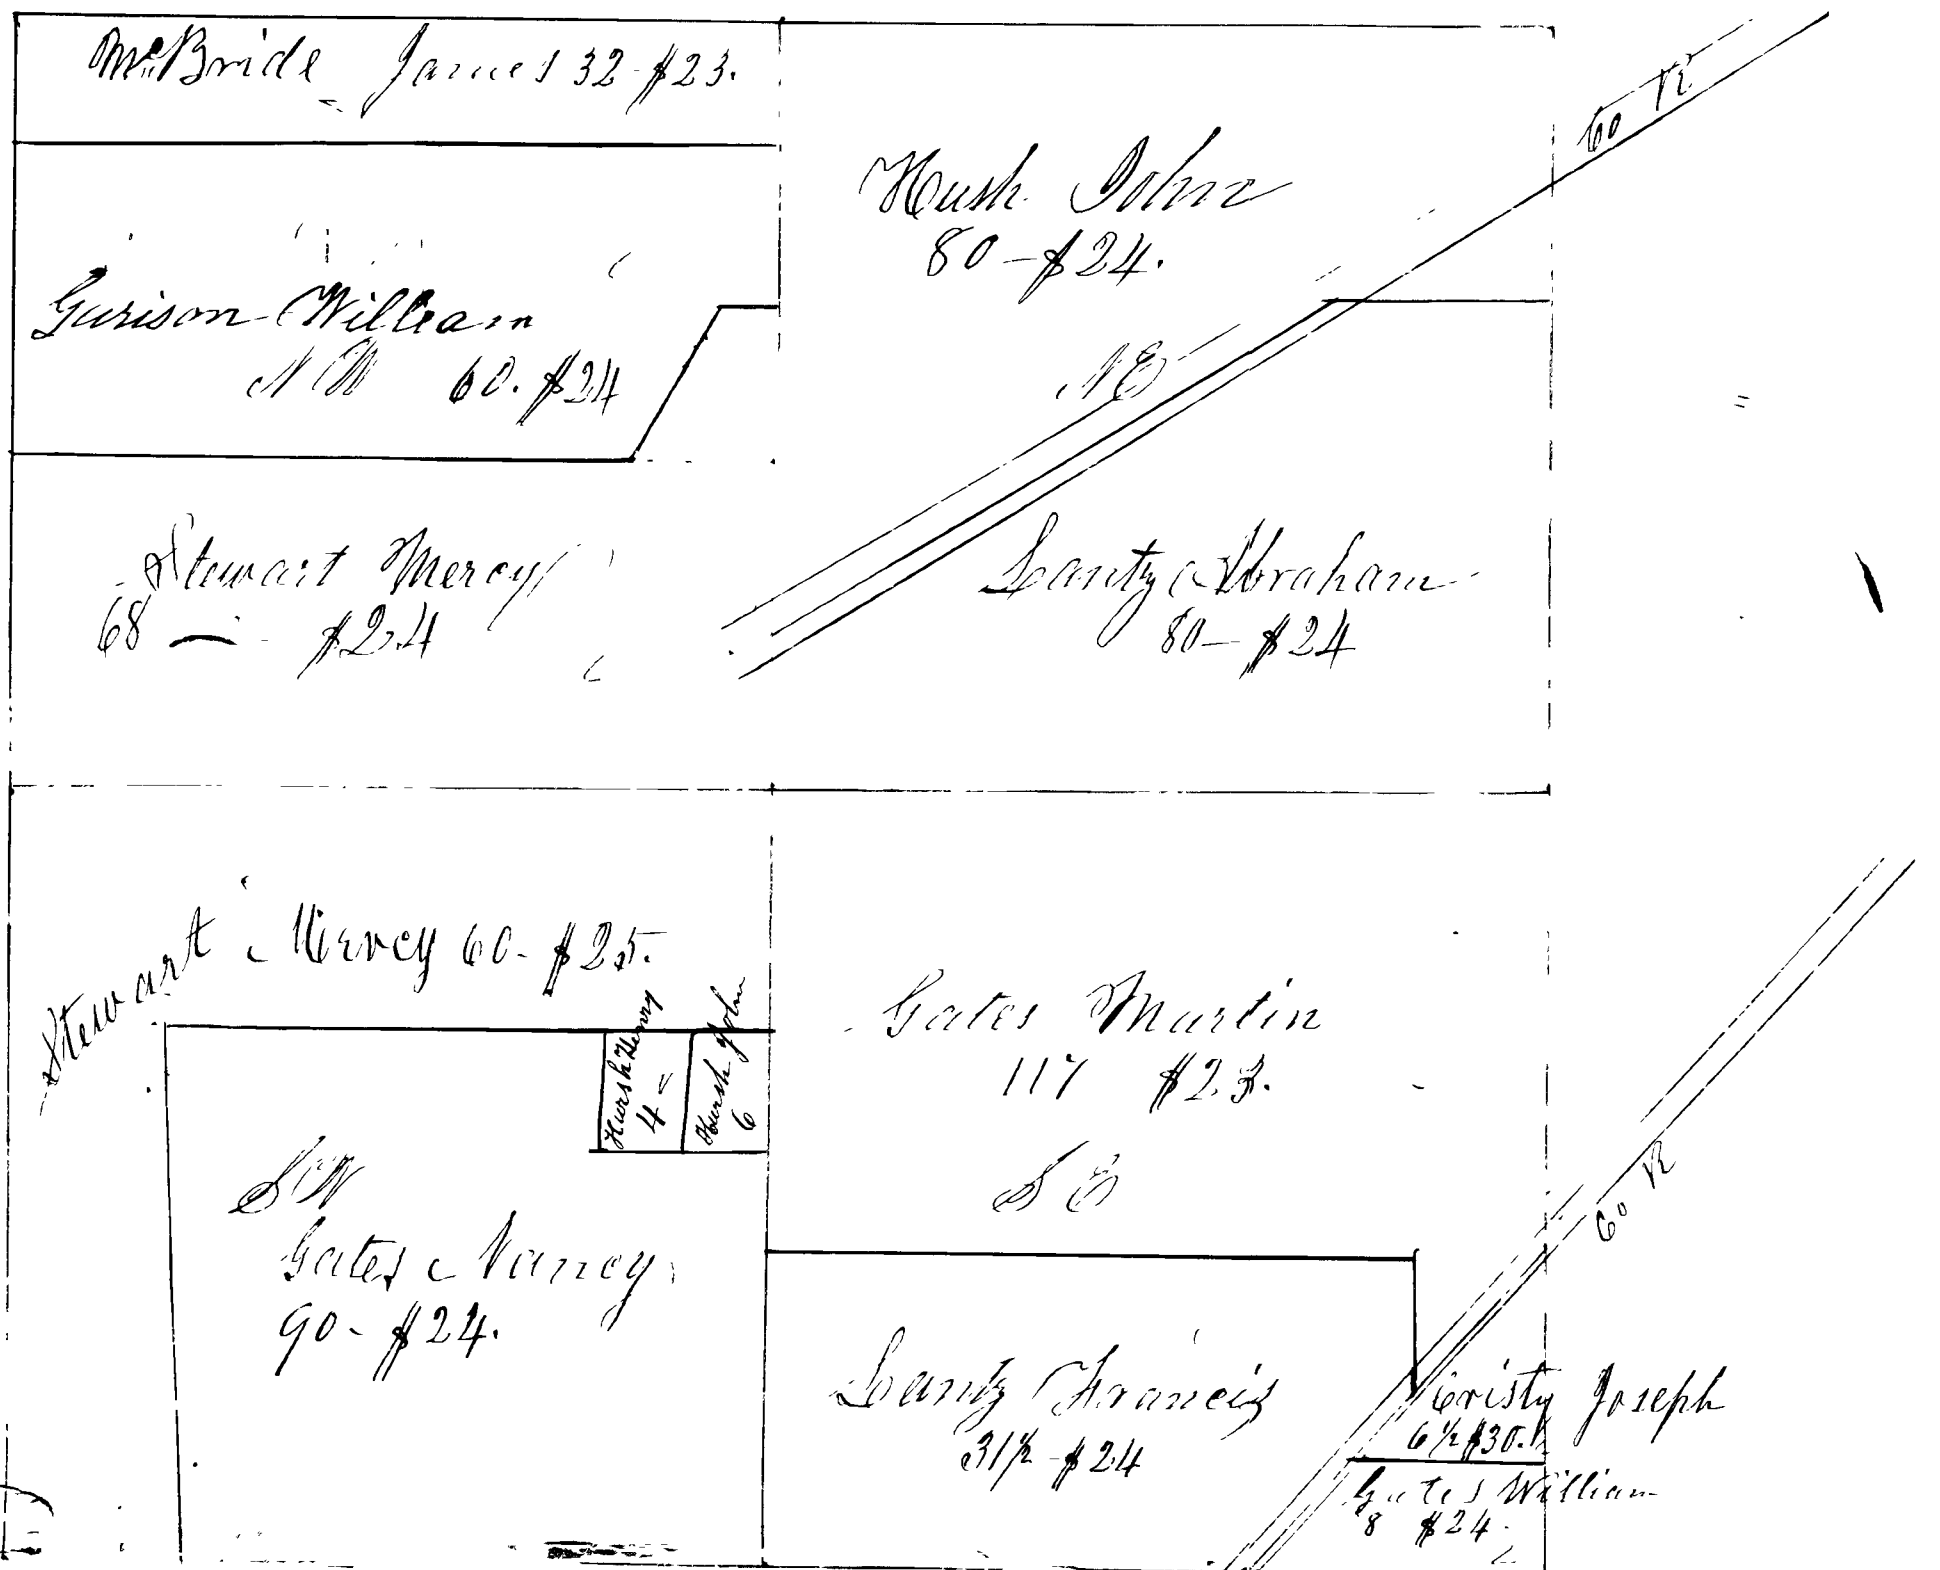 McBride James 32 - $23.
Hush John
80 - $24.
60 R
Garison William
N W 60. $24
N E
Stewart Mercy
68 — $24
Lantz Abraham
80 - $24
Stewart Mercy 60 - $25.
Hursh Henry
4
Hursh John
6
Gates Martin
117 $23.
S E
60 R
S W
Gates Nancy
90 - $24.
Lantz Francis
31½ - $24
Cristy Joseph
6½ $30.
Gates William
8 $24.